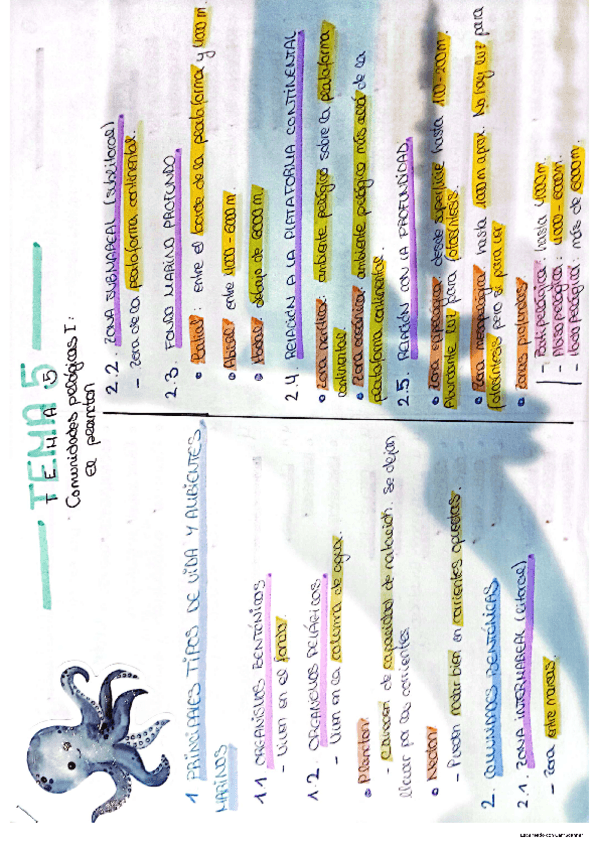 TEMA 5
TEMA 5
Comunidades pelágicas I:
El plancton
1 PRINCIPALES TIPOS DE VIDA Y AMBIENTES
MARINOS
1.1 ORGANISMOS BENTÓNICOS
- Viven en el fondo.
1.2. ORGANISMOS PELÁGICOS
- Viven en la columna de agua.
• Plancton
- Carecen de capacidad de natación. Se dejan
llevar por las corrientes.
• Necton
- Pueden nadar bien en corrientes opuestas.
2. COMUNIDADES BENTÓNICAS
2.1. ZONA INTERMAREAL (litoral)
- Zona entre mareas.
2.2. ZONA SUBMAREAL (sublitoral)
- Zona de la plataforma continental.
2.3. FONDO MARINO PROFUNDO
• Batial: entre el borde de la plataforma y 4000 m
• Abisal: entre 4000 - 6000 m
• Hadal: debajo de 6000 m
2.4. RELACIÓN A LA PLATAFORMA CONTINENTAL
• Zona nerítica: ambiente pelágico sobre la plataforma
continental.
• Zona oceánica: ambiente pelágico más allá de la
plataforma continental.
2.5. RELACIÓN CON LA PROFUNDIDAD
• Zona epipelágica: desde superficie hasta 100-200 m.
Abundante luz para fotosíntesis.
• Zona mesopelágica: hasta 1000 m aprox. No hay luz para
fotosíntesis pero sí para ver.
• Zonas profundas
- Batipelágica: hasta 4000 m.
- Abisopelágica: 4000 - 6000 m.
- Hadopelágica: más de 6000 m.
Escaneado con CamScanner